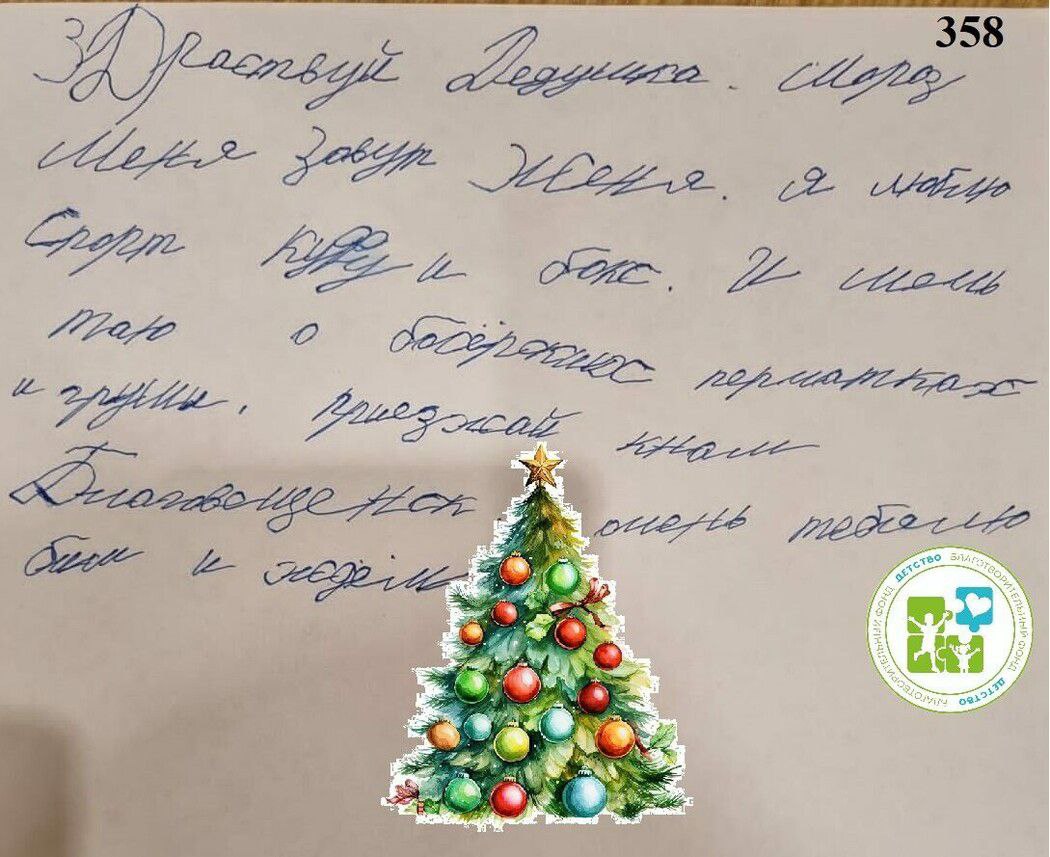 358
ЗДраствуй Дедушка. Мороз
Меня Завут Женя. я люблю
Спорт и бокс. И меч
таю о перчатках
и груши. приезжай кнам
Благовещенск очень тебялю
бим и ждём
БЛАГОТВОРИТЕЛЬНЫЙ ФОНД ДЕТСТВО БЛАГОТВОРИТЕЛЬНЫЙ ФОНД ДЕТСТВО